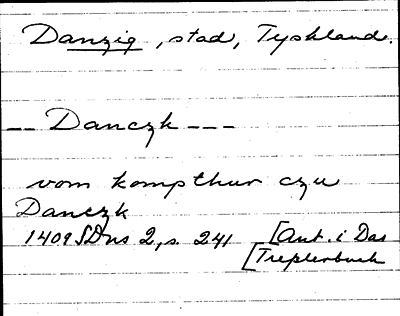 Danzig, stad, Tyskland.
-- Danczk ---
vom kompthur czu
Danczk
1409 SDns 2, s. 241 [Ant. i Das
[Treplerbuch